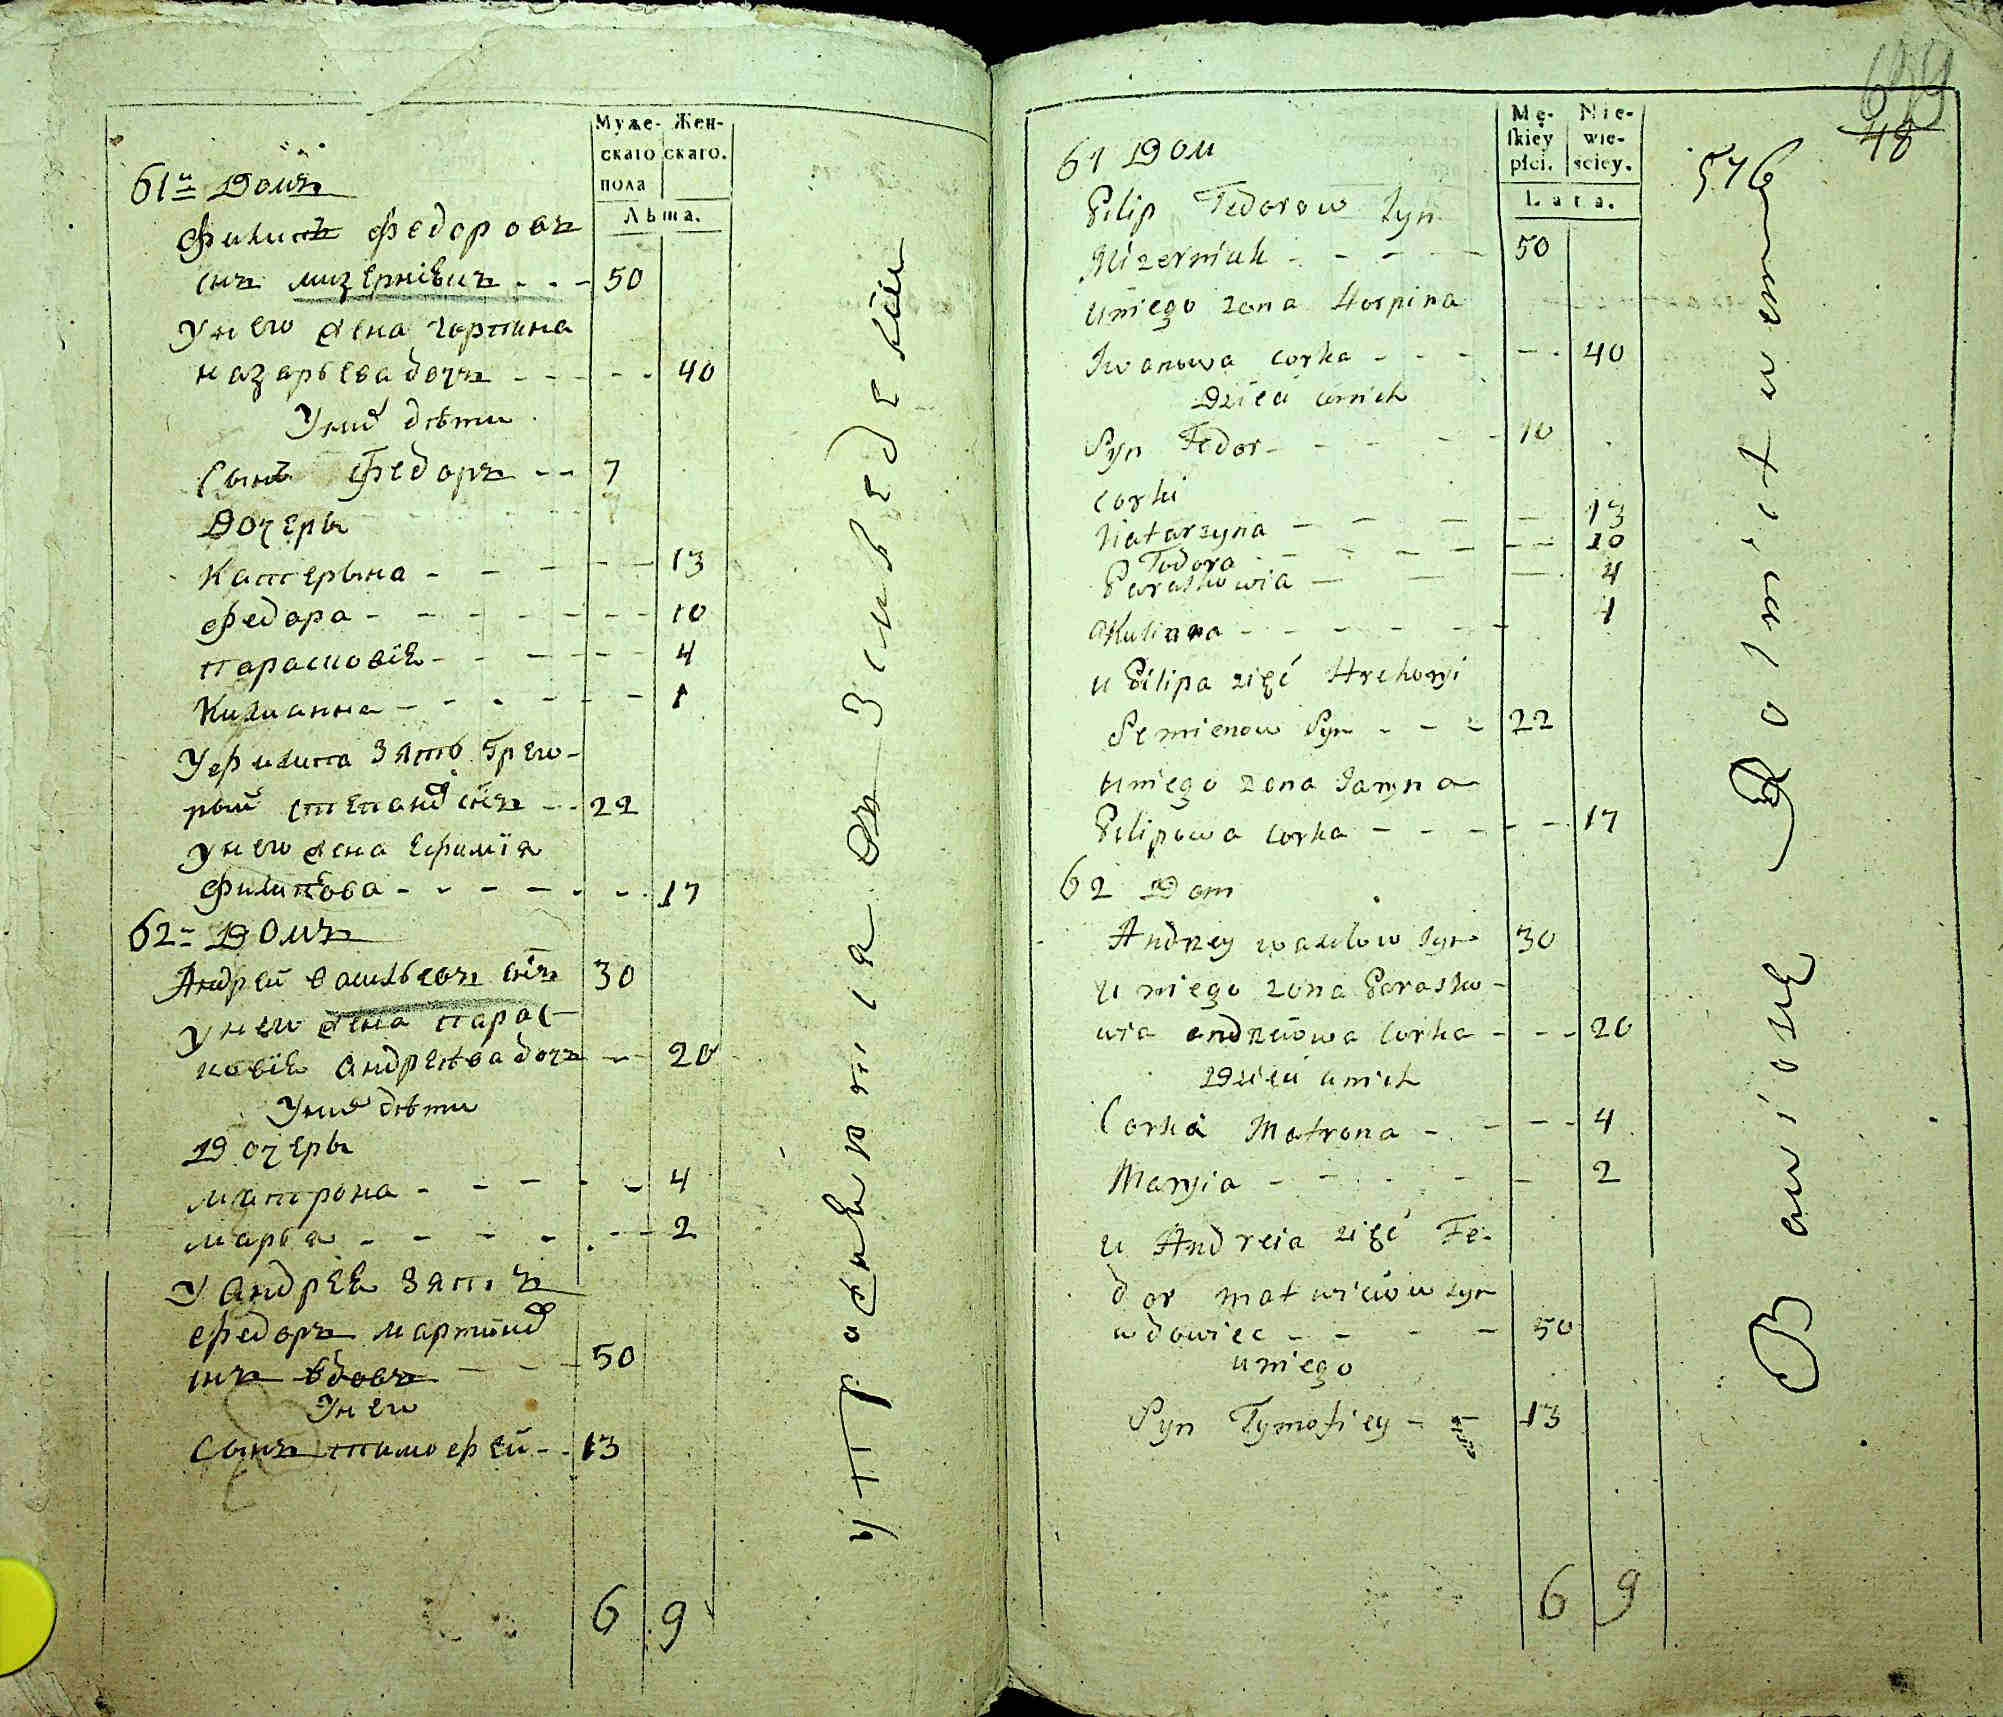 Муже- Жен-
скаго скаго.
пола
Лѣта.
61й Домъ
Филипъ Федоровъ
снъ Мизерневичъ - - - 50
У него жена Горпина
Назарьева дочъ - - - - - 40
У них дѣти
Сынъ Федоръ - - 7
Дочеры
Катерына - - - - - - 13
Федора - - - - - - - - 10
Парасковія - - - - - - 4
Килианна - - - - - - 1
У Филипа зять Григо-
рый Степанов снъ - - 22
У него жена Ефимія
Филипова - - - - - - - 17
62- Домъ
Андрей Васильевъ снъ 30
У него жена Парас-
ковія Андреѣва дочъ - - 20
У них дѣти
Дочеры
Матрона - - - - - - 4
Марья - - - - - - - - 2
У Андрея зять
Федоръ Мартинов
снъ вдовъ - - - - 50
У него
Сынъ Тимофей - - 13
6 9
699
48
576
Mę- Nie-
skiey wie-
płci. sciey.
Lata.
61 Dom
Pilip Fedorow Syn
Mizerniuk - - - - - 50
u niego zona Horpina
Iwanowa corka - - - - - - 40
Dzieci u nich
Syn Fedor - - - - - - 10
Corki
Katarzyna - - - - - 13
Todora - - - - - - - - 10
Paraskowia - - - - 4
Akulinna - - - - - - - 1
u Pilipa zięć Hrehoryi
Semienow Syn - - - 22
u niego zona Jaryna
Pilipowa Corka - - - - - - 17
62 Dom
Andrzey Wasilow Syn 30
u niego zona Parasko-
wia Andreiowa Corka - - - 20
Dzieci u nich
Corka Matrona - - - - 4
Maryia - - - - - - 2
u Andreia zięć Fe-
dor Matwieiow syn
wdowiec - - - - 50
u niego
Syn Tymofiey - - 13
6 9